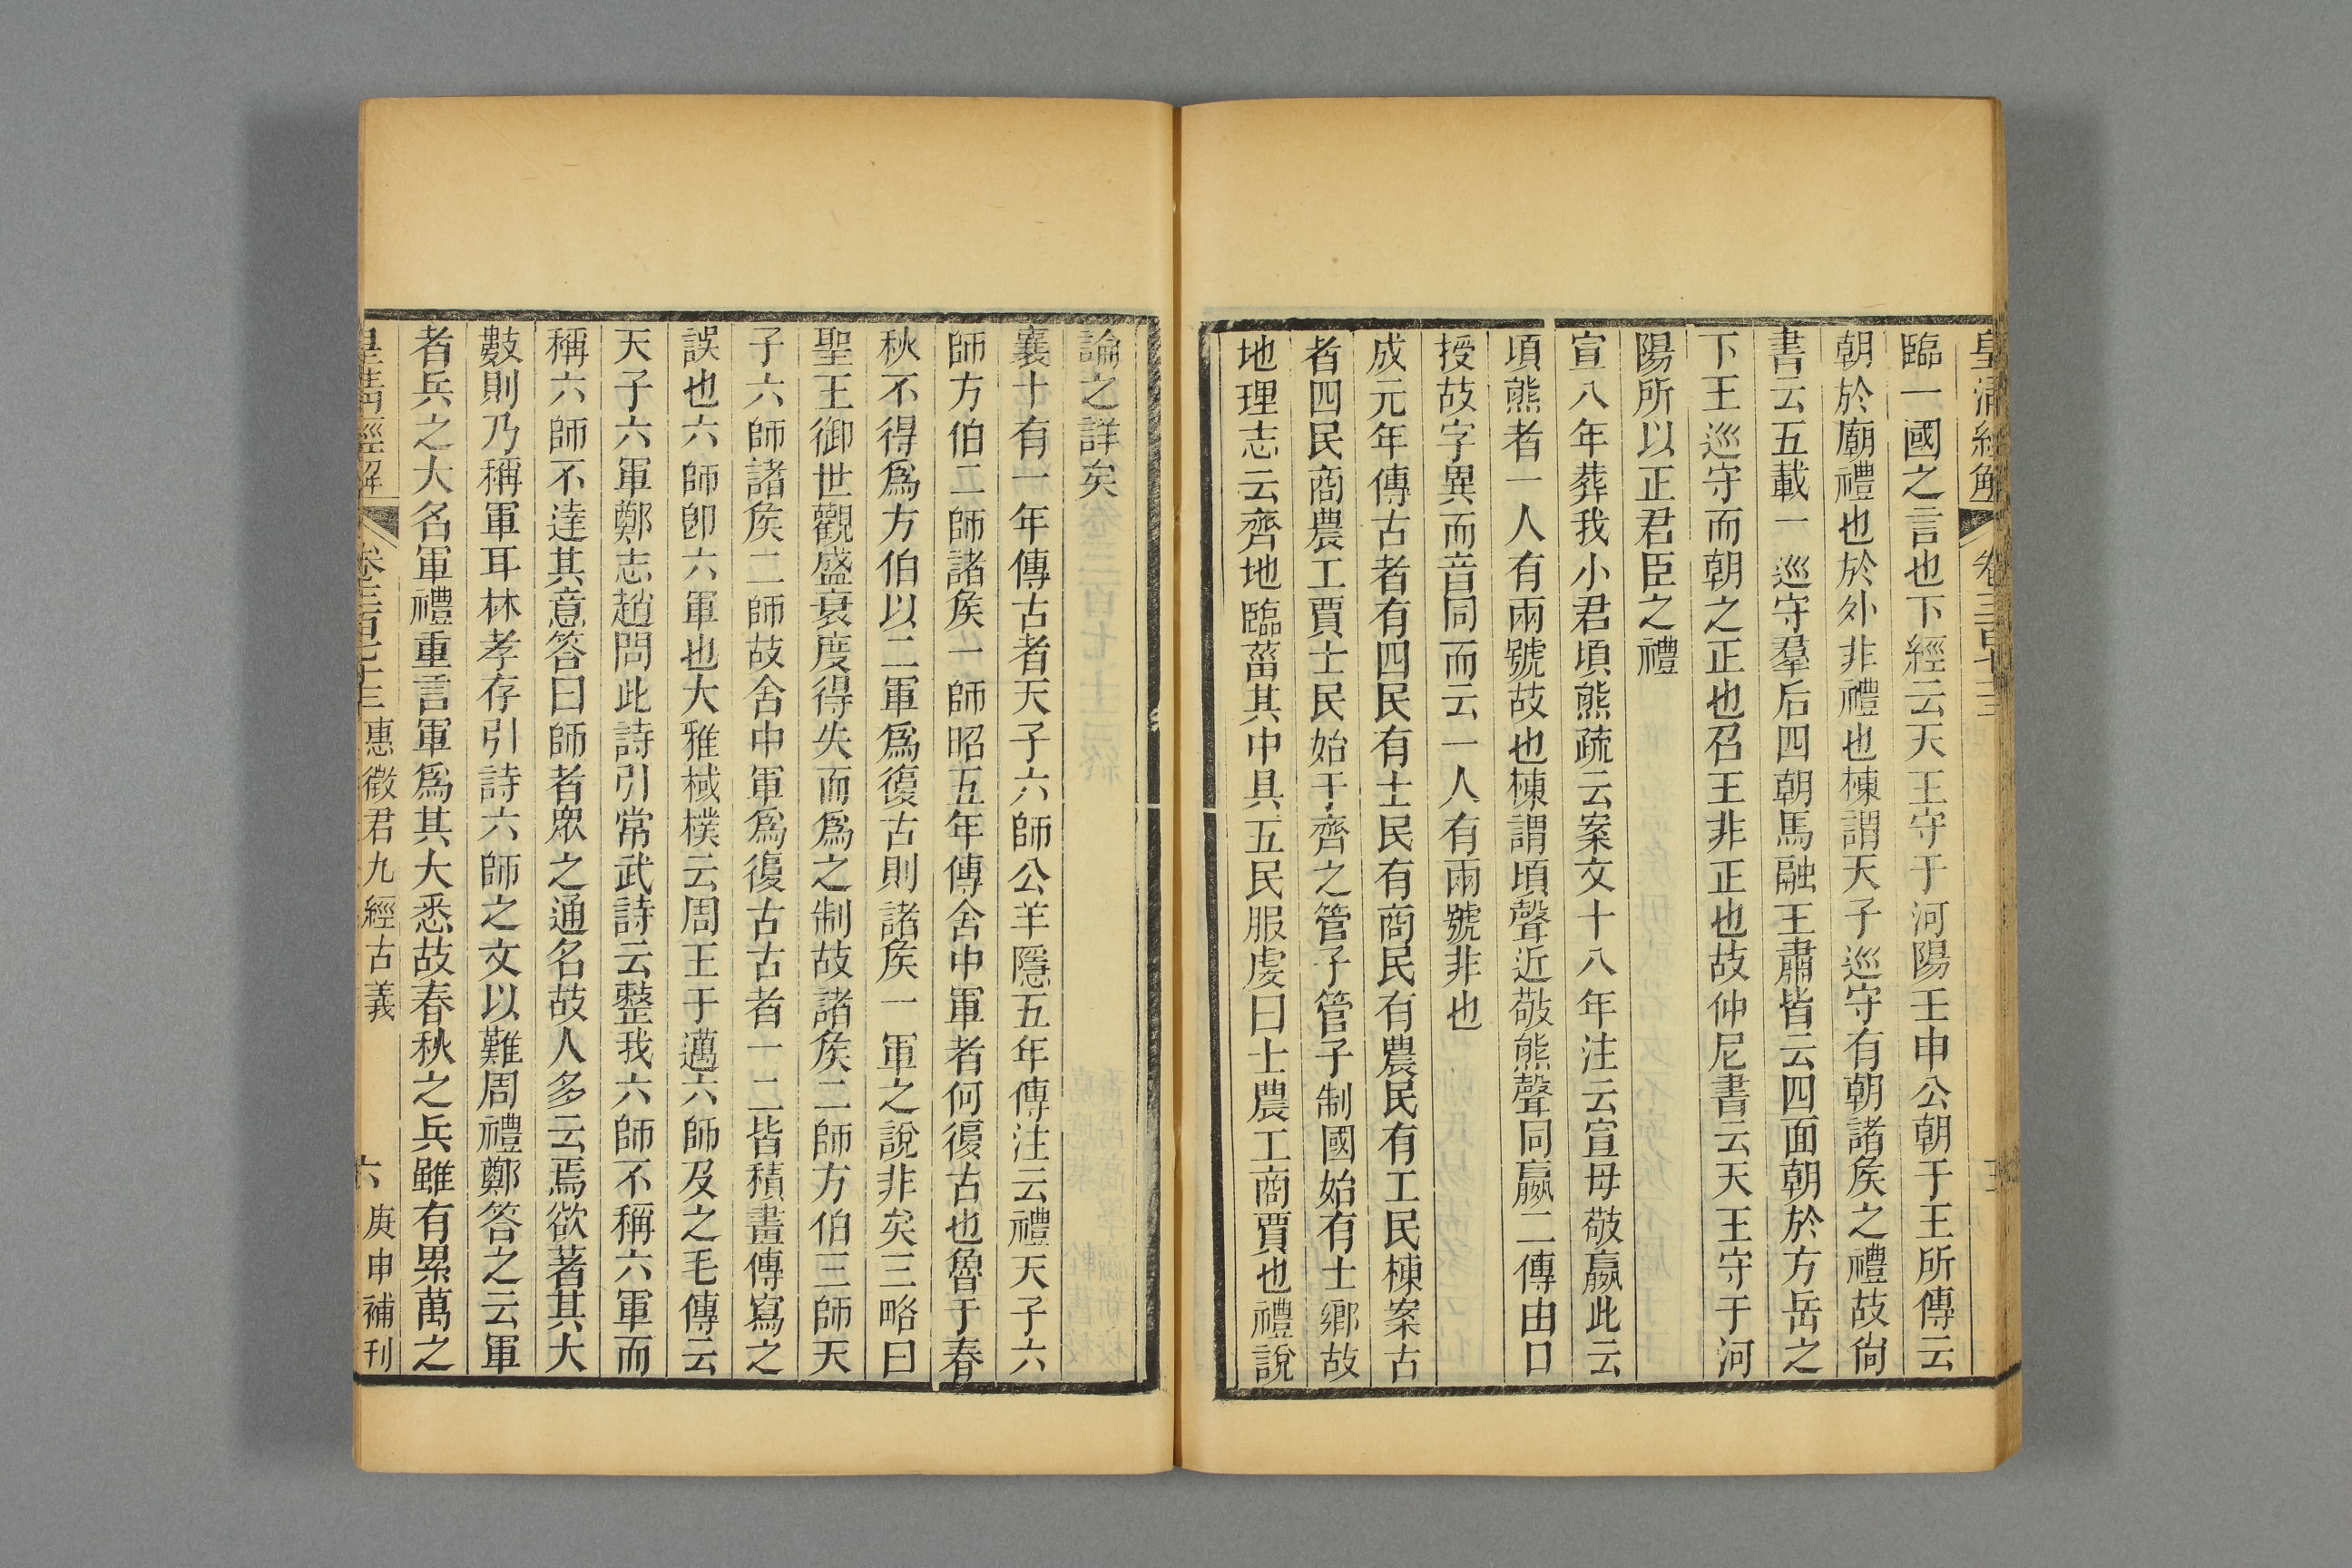 皇清經解
卷三百七十三
臨一國之言也下經云天王守于河陽壬申公朝于王所傳云
朝於廟禮也於外非禮也棟謂天子巡守有朝諸矦之禮故尙
書云五載一巡守羣后四朝馬融王肅皆云四面朝於方岳之
下王巡守而朝之正也召王非正也故仲尼書云天王守于河
陽所以正君臣之禮
宣八年葬我小君頃熊疏云案文十八年注云宣毋敬嬴此云
頃熊者一人有兩號故也棟謂頃聲近敬熊聲同嬴二傳由口
授故字異而音同而云一人有兩號非也
成元年傳古者有四民有士民有商民有農民有工民棟案古
者四民商農工賈士民始于齊之管子管子制國始有士鄕故
地理志云齊地臨菑其中具五民服虔曰士農工商賈也禮說
論之詳矣
襄十有一年傳古者天子六師公羊隱五年傳注云禮天子六
師方伯二師諸矦一師昭五年傳舍中軍者何復古也魯于春
秋不得爲方伯以二軍爲復古則諸矦一軍之說非矣三略曰
聖王御世觀盛衰度得失而爲之制故諸矦二師方伯三師天
子六師諸矦二師故舍中軍爲復古古者一二皆積畫傳寫之
誤也六師卽六軍也大雅棫樸云周王于邁六師及之毛傳云
天子六軍鄭志趙問此詩引常武詩云整我六師不稱六軍而
稱六師不達其意答曰師者眾之通名故人多云焉欲著其大
數則乃稱軍耳林孝存引詩六師之文以難周禮鄭答之云軍
者兵之大名軍禮重言軍爲其大悉故春秋之兵雖有累萬之
皇淸經解
卷三百七十三 惠徵君九經古義
六 庚申補刊